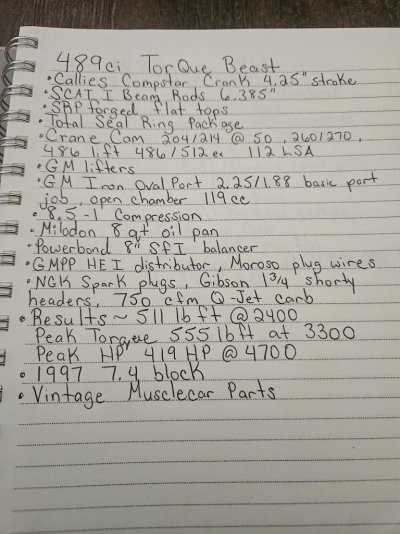 489ci TorQue Beast
• Callies Compstar Crank 4.25" stroke
• SCAT I Beam Rods 6.385"
• SRP forged flat tops
• Total Seal Ring Package
• Crane Cam 204/214 @ 50, .260/270,
486 lift 486/512 ex 112 LSA
• GM lifters
• GM Iron Oval Port 2.25/1.88 basic port
job, open chamber 119cc
• 8.5-1 Compression
• Milodon 8 qt oil pan
• Powerbond 8" SfI balancer
• GMPP HEI distributor, Moroso plug wires
• NGK Spark plugs, Gibson 1 3/4 shorty
headers, 750 cfm Q-Jet carb
• Results ~ 511 lb ft @ 2400
Peak Torque 555 lb ft at 3300
Peak HP, 419 HP @ 4700
• 1997 7.4 block
• Vintage Musclecar Parts